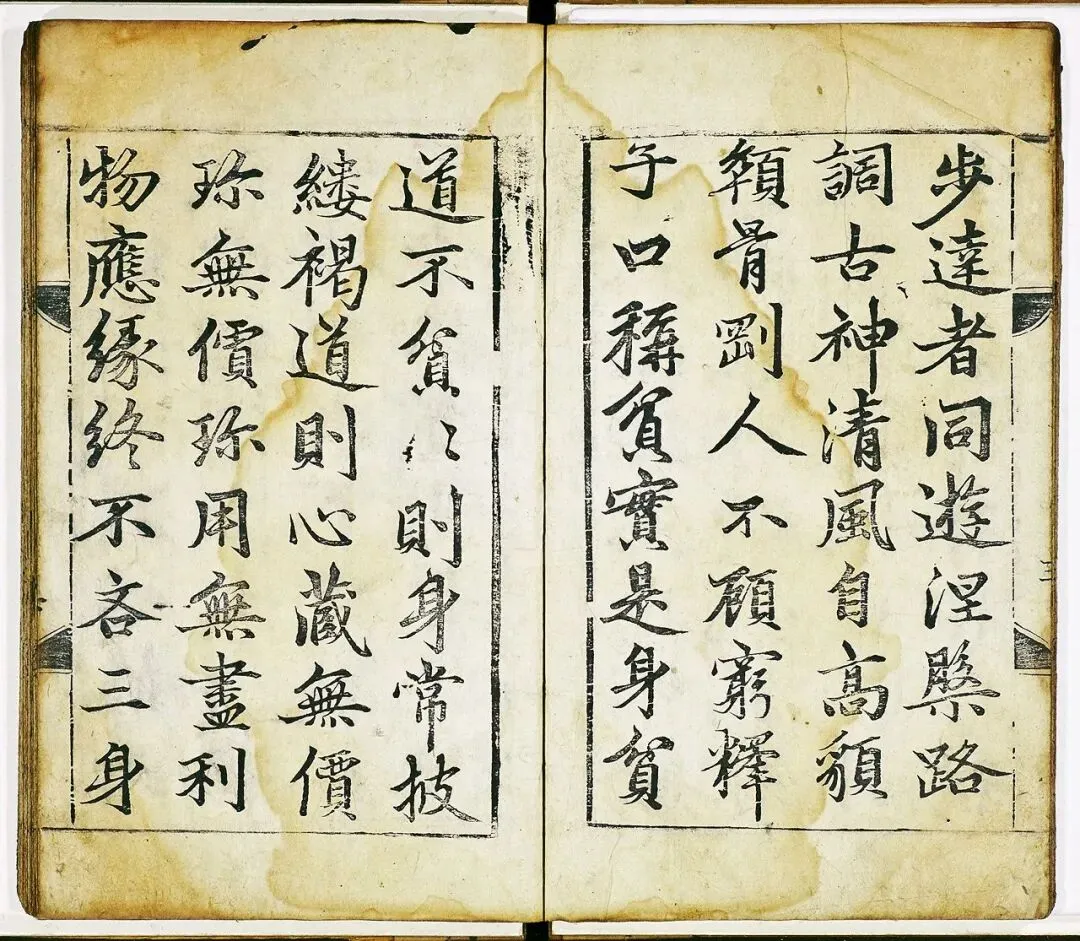 步達者同遊涅槃路
調古神清風自高貌
顇骨剛人不顧窮釋
子口稱貧實是身貧
道不貧〻則身常披
縷褐道則心藏無價
珎無價珎用無盡利
物應緣終不吝三身